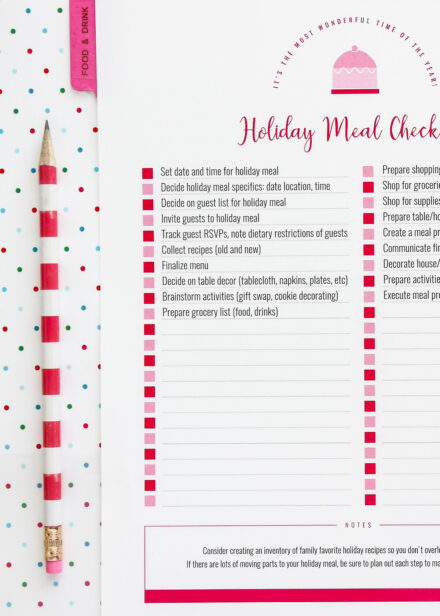 FOOD & DRINK
IT'S THE MOST WONDERFUL TIME OF THE YEAR!
Holiday Meal Check
Set date and time for holiday meal
Decide holiday meal specifics: date location, time
Decide on guest list for holiday meal
Invite guests to holiday meal
Track guest RSVPs, note dietary restrictions of guests
Collect recipes (old and new)
Finalize menu
Decide on table decor (tablecloth, napkins, plates, etc)
Brainstorm activities (gift swap, cookie decorating)
Prepare grocery list (food, drinks)
Prepare shopping
Shop for grocerie
Shop for supplies
Prepare table/ho
Create a meal pr
Communicate fin
Decorate house/
Prepare activitie
Execute meal pre
NOTES
Consider creating an inventory of family favorite holiday recipes so you don't overl
If there are lots of moving parts to your holiday meal, be sure to plan out each step to ma